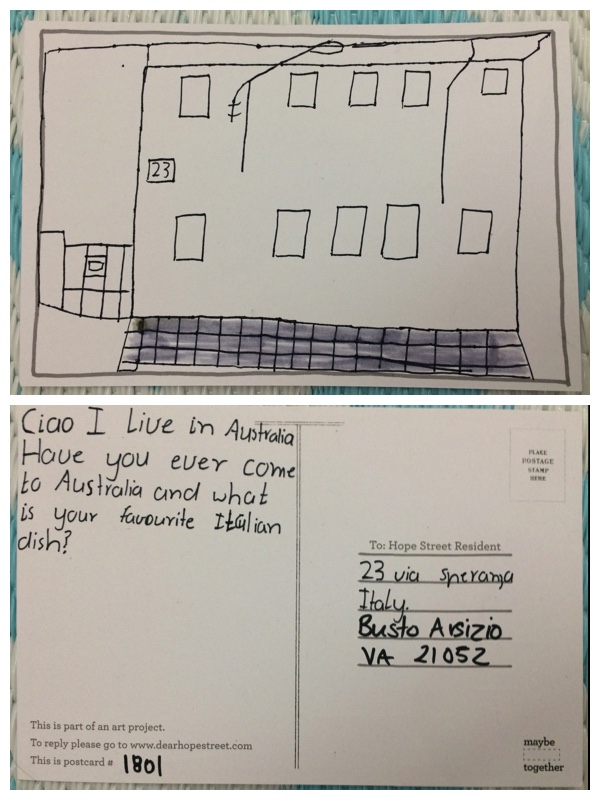 23
Ciao I Live in Australia
Have you ever come
to Australia and what
is your favourite Italian
dish?
PLACE
POSTAGE
STAMP
HERE
To: Hope Street Resident
23 via speranza
Italy.
Busto Arsizio
VA 21052
This is part of an art project.
To reply please go to www.dearhopestreet.com
This is postcard # 1801
maybe
together